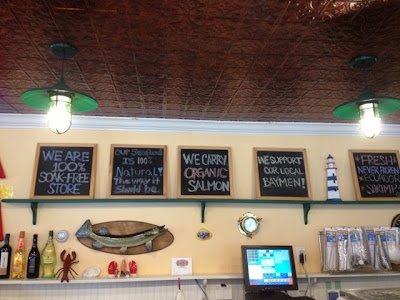 WE ARE
100%
SOAK-FREE
STORE
Our Seafood
IS 100%
Natural!
The way it
Should be
WE CARRY
ORGANIC
SALMON
WE SUPPORT
OUR LOCAL
BAYMEN!
*FRESH*
NEVER FROZEN
ECUADOR
SHRIMP